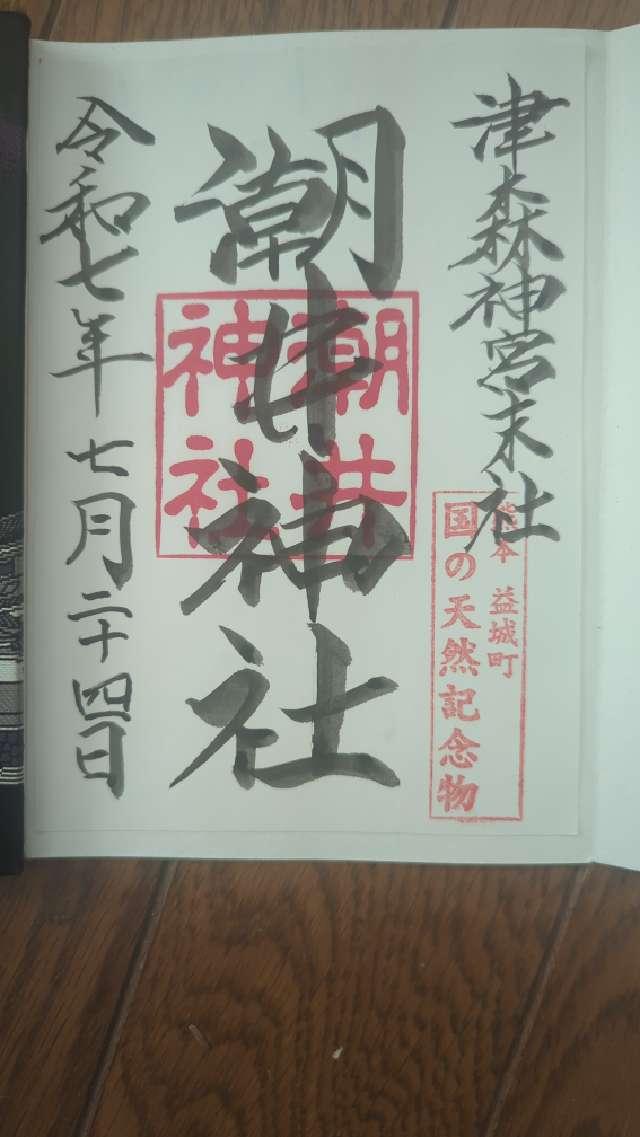 津森神宮末社
熊本 益城町
国の天然記念物
潮井神社
潮井
神社
令和七年七月二十四日